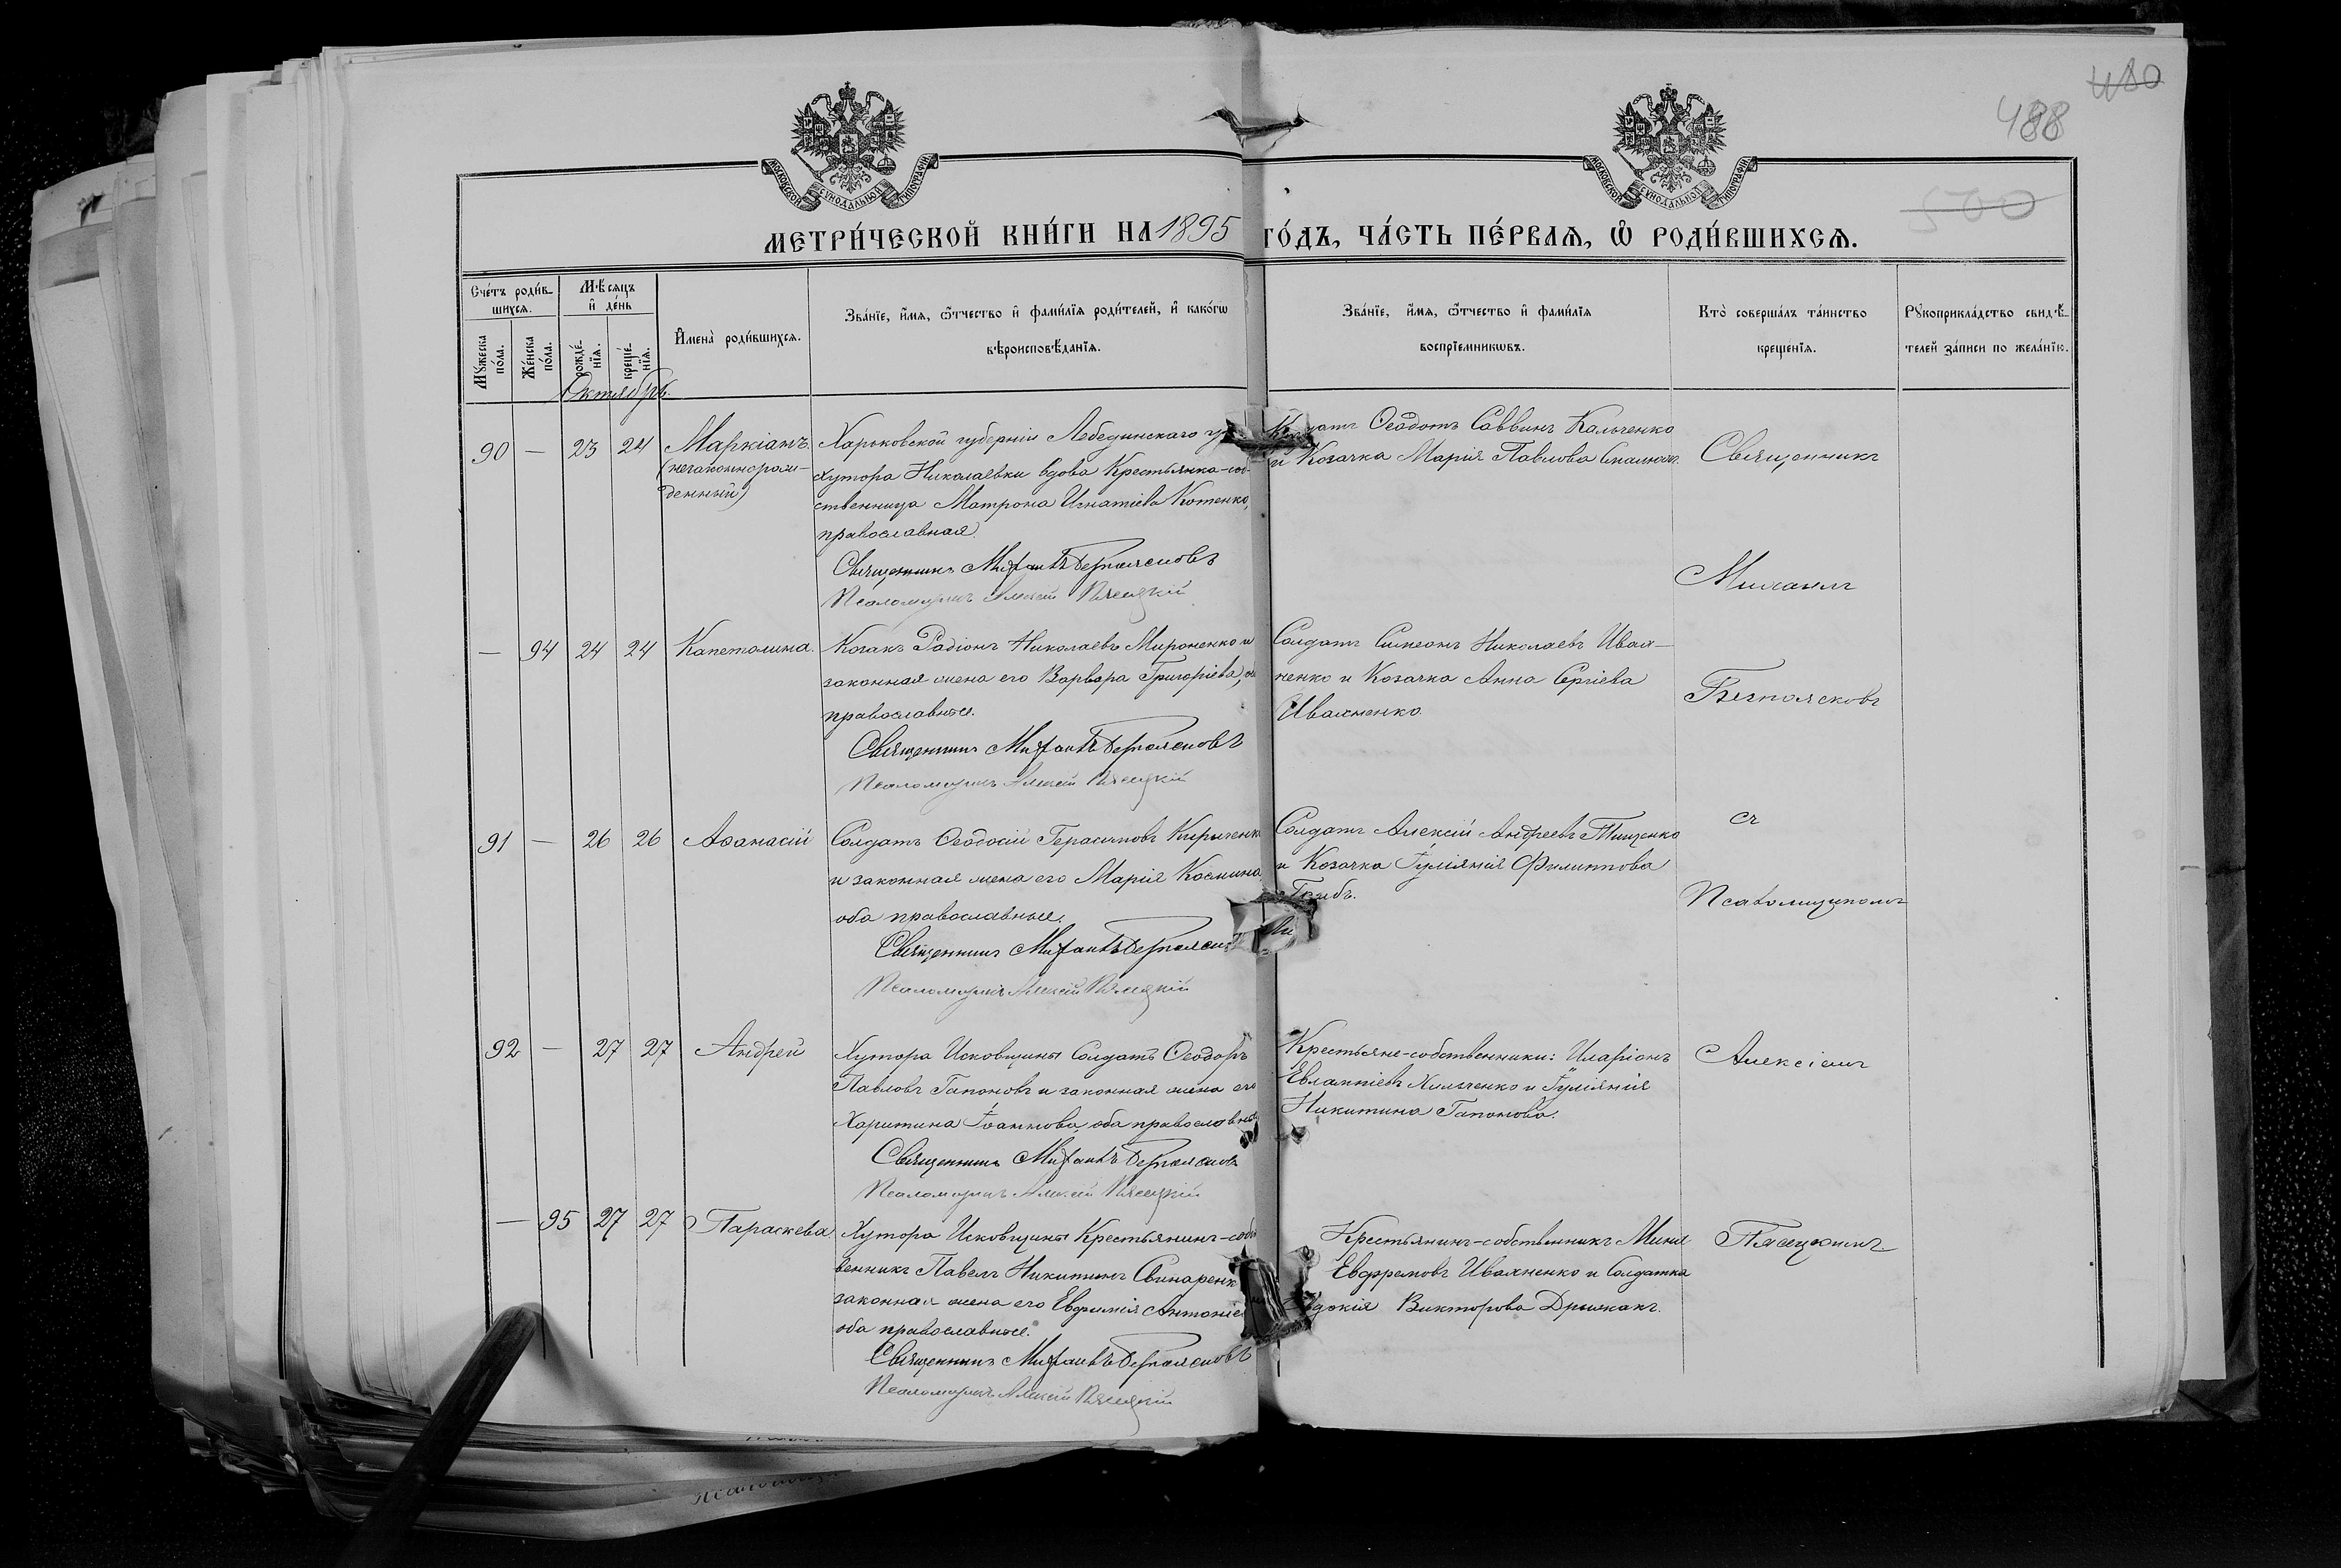 480
488
500
МОСКОВСКОЙ СѴНОДАЛЬНОЙ ТИПОГРАФІИ
МОСКОВСКОЙ СѴНОДАЛЬНОЙ ТИПОГРАФІИ
МЕТРИ́ЧЕСКОЙ КНИ́ГИ НА 1895 ГО́ДЪ, ЧА́СТЬ ПЕ́РВАѦ, Ѡ҆ РОДИ́ВШИХСѦ.
Сче́тъ роди́в-
шихсѧ.
Мꙋжеска по́ла.
Же́нска по́ла.
Мѣ́сѧцъ
и҆ де́нь
рожде́-
нїѧ.
креще́-
нїѧ.
И҆мена̀ роди́вшихсѧ.
Зва́нїе, и҆́мѧ, ѻ҆́тчество и҆ фами́лїѧ роди́телей, и҆ како́гѡ
вѣроисповѣ́данїѧ.
Зва́нїе, и҆́мѧ, ѻ҆́тчество и҆ фами́лїѧ
воспрїе́мникѡвъ.
Кто̀ соверша́лъ та́инство
креще́нїѧ.
Рꙋкоприкла́дство свидѣ́-
телей за́писи по жела́нїю.
Октябрь
90 — 23 24 Маркіанъ
(незаконнорож-
денный)
Харьковской губерніи Лебединскаго
хутора Николаевки вдова Крестьянка-соб-
ственница Матрона Игнатіева Котенко,
православная.
Священникъ Михаилъ Безпоясковъ
Псаломщикъ Алексій Пясецкій
Ѳеодотъ Саввинъ Кальченко
и Козачка Марія Павлова
Священникъ
Михаилъ
— 94 24 24 Капетолина.
Козакъ Родіонъ Николаевъ Мироненко и
законная жена его Варвара Григоріева,
православные.
Священникъ Михаилъ Безпоясковъ
Псаломщикъ Алексій Пясецкій
Солдатъ Симеонъ Николаевъ Ивах-
ненко и Козачка Анна Сергіева
Ивахненко.
Безпоясковъ
91 — 26 26 Аѳанасій
Солдатъ Ѳеодосій Герасимовъ Кириченко
и законная жена его Марія Космина,
оба православные.
Священникъ Михаилъ Безпоясковъ
Псаломщикъ Алексій Пясецкій
Солдатъ Алексій Андреевъ Тищенко
и Козачка Іуліянія Филиппова
съ
Псаломщикомъ
92 — 27 27 Андрей
Хутора Исковщины Солдатъ Ѳеодоръ
Павловъ Гапоновъ и законная жена его
Харитина Іоаннова, оба православные
Священникъ Михаилъ Безпоясковъ
Псаломщикъ Алексій Пясецкій
Крестьяне-собственники: Иларіонъ
Евлампіевъ Хильченко и Іуліянія
Никитина Гапонова.
Алексіемъ
— 95 27 27 Параскева
Хутора Исковщины Крестьянинъ-собст
венникъ Павелъ Никитинъ Свинаренко
законная жена его Евфимія Антоніева
оба православные.
Священникъ Михаилъ Безпоясковъ
Псаломщикъ Алексій Пясецкій
Крестьянинъ-собственникъ Мина
Евфремовъ Ивахненко и Солдатка
Викторова Дрыжакъ.
Пясецкимъ.